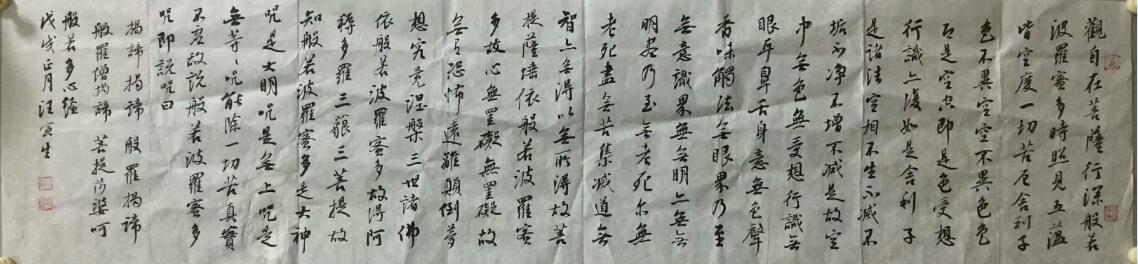 觀自在菩薩行深般若
波羅蜜多時照見五蘊
皆空度一切苦厄舍利子
色不異空空不異色色
即是空空即是色受想
行識亦復如是舍利子
是諸法空相不生不滅不
垢不淨不增不減是故空
中無色無受想行識無
眼耳鼻舌身意無色聲
香味觸法無眼界乃至
無意識界無無明亦無無
明盡乃至無老死亦無
老死盡無苦集滅道無
智亦無得以無所得故菩
提薩埵依般若波羅蜜
多故心無罣礙無罣礙故
無有恐怖遠離顛倒夢
想究竟涅槃三世諸佛
依般若波羅蜜多故得阿
耨多羅三藐三菩提故
知般若波羅蜜多是大神
咒是大明咒是無上咒是
無等々咒能除一切苦真實
不虛故說般若波羅蜜多
咒即說咒曰
揭諦揭諦 般羅揭諦
般羅僧揭諦 菩提薩婆呵
般若多心經
戊戌正月汪寅生